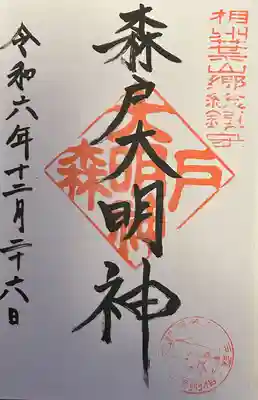 相州葉山郷総鎮守
森戸大明神
森戸大明神
令和六年十二月二十六日